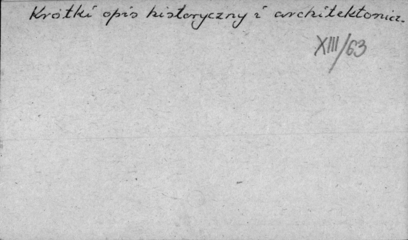 Krótki opis historyczny i architektonicz.
XIII/63